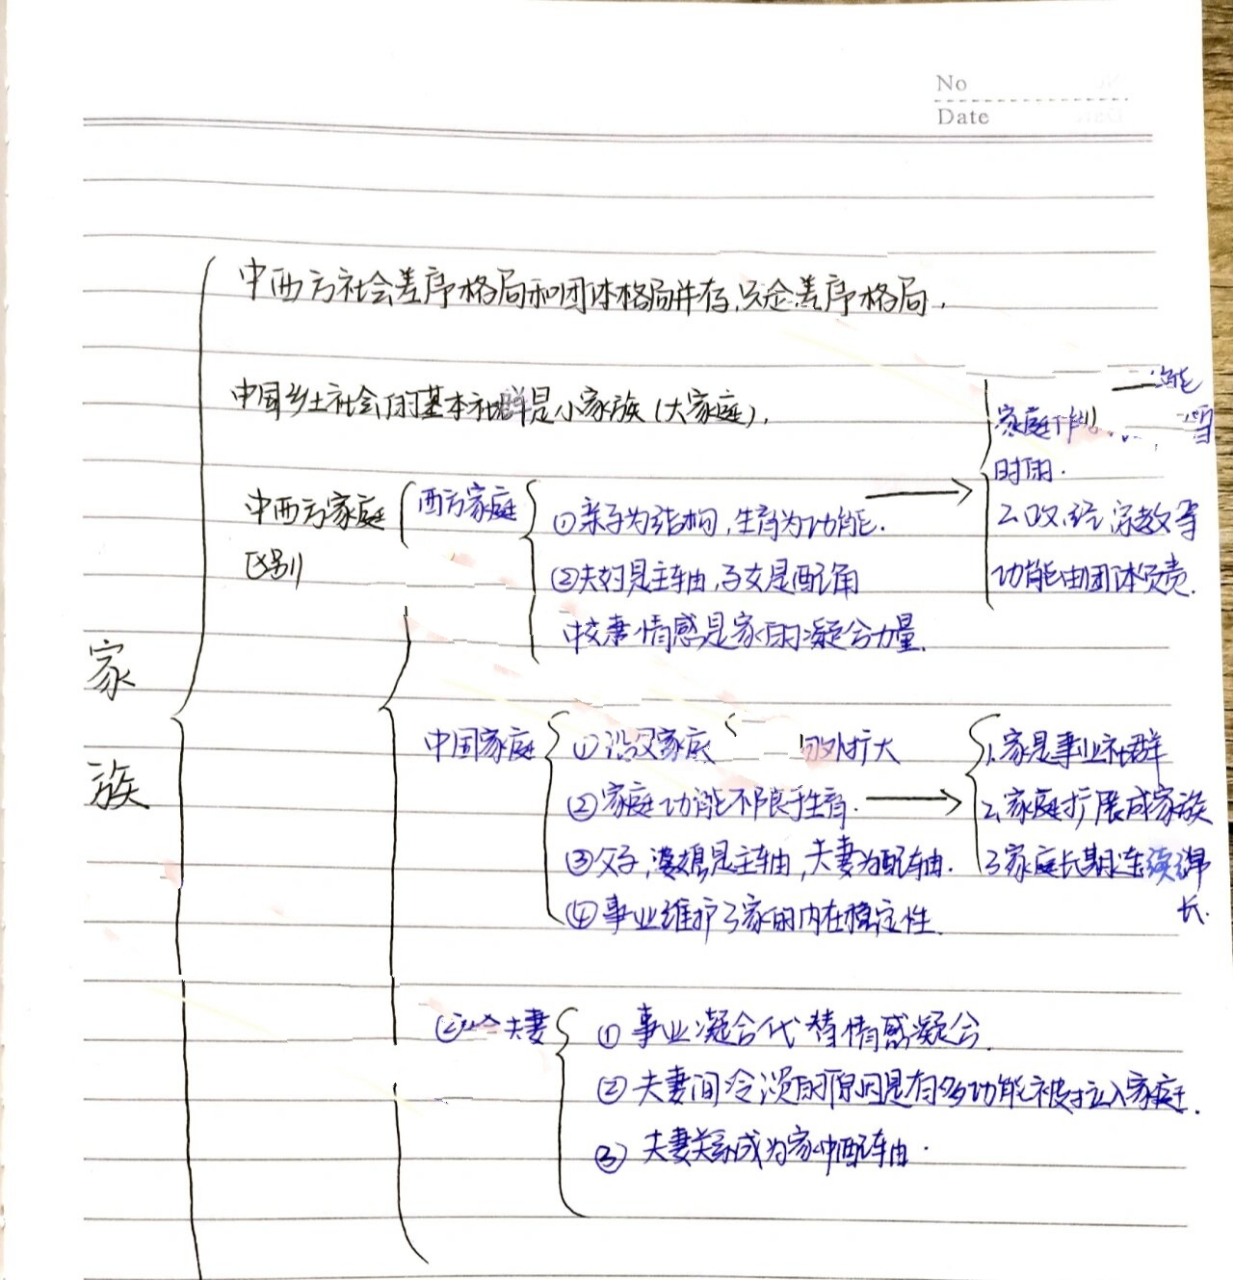 No
Date
中西方社会差序格局和团体格局并存,只是差序格局.
中国乡土社会的基本社群是小家族(大家庭),
中西方家庭
区别
西方家庭
①亲子为结构,生育为功能.
②夫妇是主轴,子女是配角
情感是家的凝合力量.
能
家庭
时
2.政.经.宗教等
功能由团体负责.
家
族
中国家庭
① 家庭 扩大
②家庭功能不限于生育.
③父子,婆媳是主轴,夫妻为配轴.
④事业维护了家的内在稳定性.
1.家是事业社群
2.家庭扩展成家族
3家庭长期连续绵
长.
夫妻
①事业凝合代替情感凝合.
②夫妻间冷淡的原因是有多功能被拉入家庭.
③ 夫妻关系成为家中配轴.